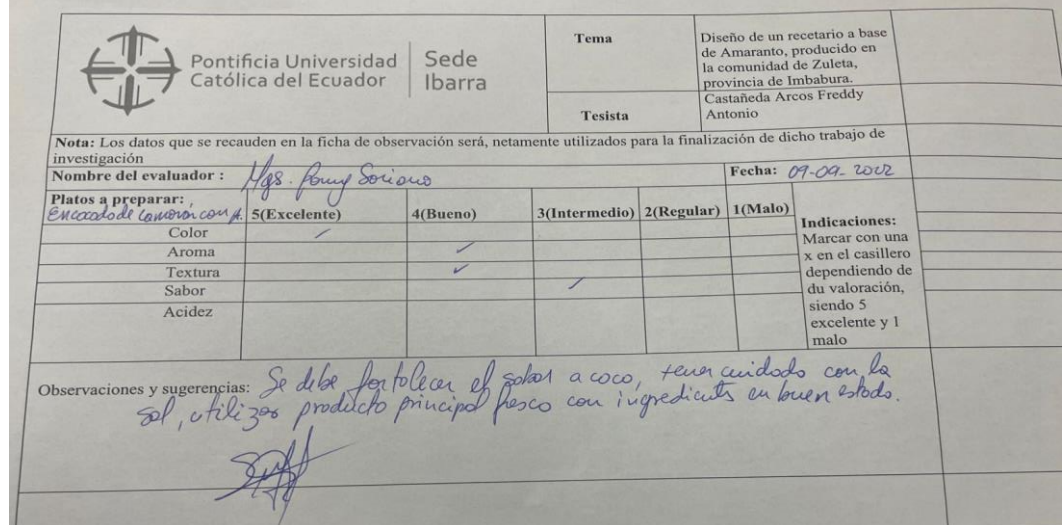 Pontificia Universidad
Católica del Ecuador
Sede
Ibarra
Tema
Diseño de un recetario a base
de Amaranto, producido en
la comunidad de Zuleta,
provincia de Imbabura.
Tesista
Castañeda Arcos Freddy
Antonio
Nota: Los datos que se recauden en la ficha de observación será, netamente utilizados para la finalización de dicho trabajo de
investigación
Nombre del evaluador : Mgs. Soriano
Fecha: 09-09-2022
Platos a preparar:
Encocado de camaron con A.
5(Excelente) 4(Bueno) 3(Intermedio) 2(Regular) 1(Malo)
Color
Aroma
Textura
Sabor
Acidez
Indicaciones:
Marcar con una
x en el casillero
dependiendo de
du valoración,
siendo 5
excelente y 1
malo
Observaciones y sugerencias: Se debe fortolecer el sabor a coco, tener cuidado con la
sal, utilizar producto principal fresco con ingredients en buen estado.